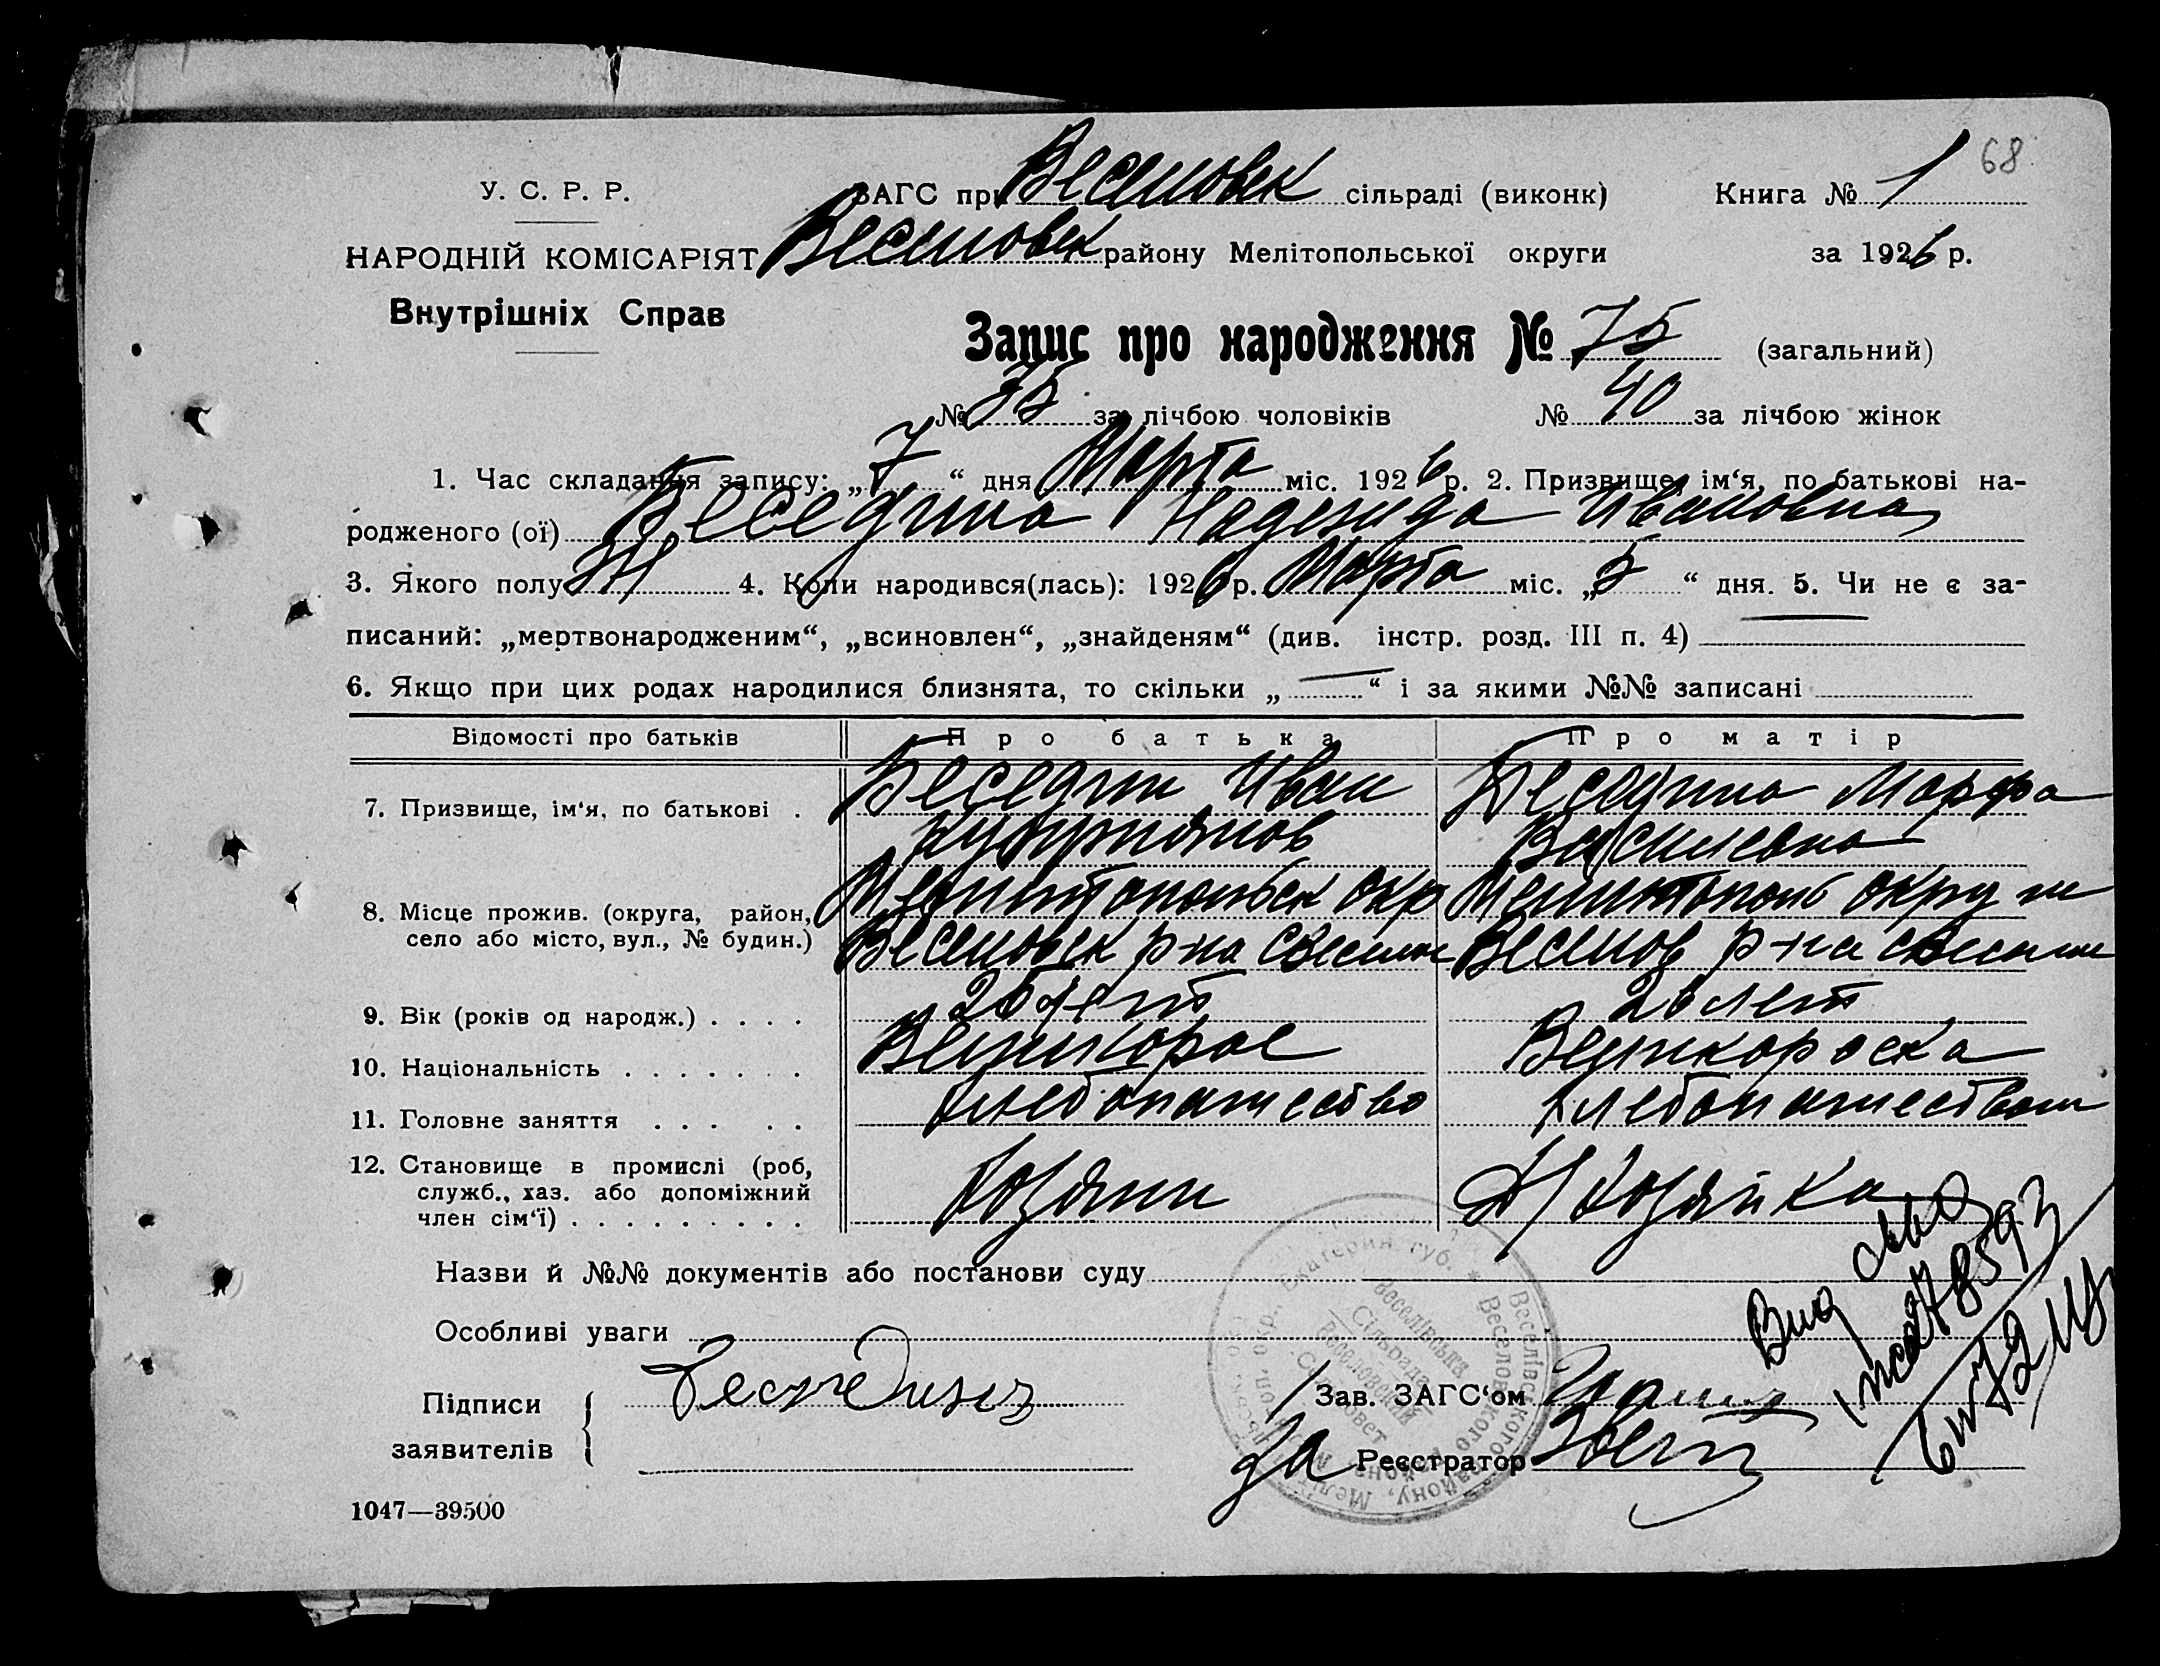 68
У. С. Р. Р.
ЗАГС при Веселовск сільраді (виконк) Книга № 1
НАРОДНІЙ КОМІСАРІЯТ Веселовск району Мелітопольської округи за 1926 р.
Внутрішніх Справ
Запис про народження № 75 (загальний)
№ 35 за лічбою чоловіків № 40 за лічбою жінок
1. Час складання запису: „7“ дня Марта міс. 1926 р. 2. Призвище, ім‘я, по батькові на-
родженого (ої) Беседина Надежда Ивановна
3. Якого полу Ж 4. Коли народився(лась): 1926 р. Марта міс. „5“ дня. 5. Чи не є за-
писаний: „мертвонародженим“, „всиновлен“, „знайденям“ (див. інстр. розд. III п. 4) —
6. Якщо при цих родах народилися близнята, то скільки „—“ і за якими №№ записані
Відомості про батьків Про батька Про матір
7. Призвище, ім‘я, по батькові . Беседин Иван Беседина Марфа
Куприянов Василевна
8. Місце прожив. (округа, район, Мелитопольск окр Мелитополь округи
село або місто, вул., № будин.) Веселовск р-на с Веселое Веселов р-на с Веселое
9. Вік (років од народж.) . . . . 26 лет 26 лет
10. Національність . . . . . . . Великорос Великороска
11. Головне заняття . . . . . хлебопашество хлебопашеством
12. Становище в промислі (роб,
служб., хаз. або допоміжний Хозяин Хозяйка
член сім‘ї) . . . . . . . . .
Назви й №№ документів або постанови суду
Особливі уваги
Підписи Беседин Зав. ЗАГС‘ом
заявителів За Реєстратор
Вид
1047—39500